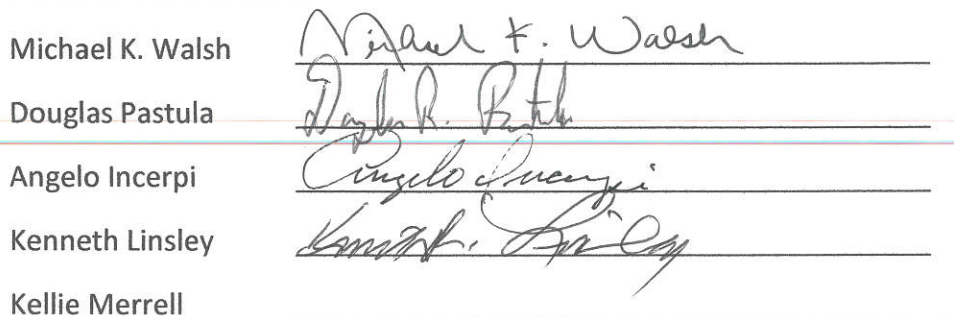 Michael K. Walsh Michael K. Walsh
Douglas Pastula Douglas R. Pastula
Angelo Incerpi Angelo Incerpi
Kenneth Linsley Kenneth R. Linsley
Kellie Merrell